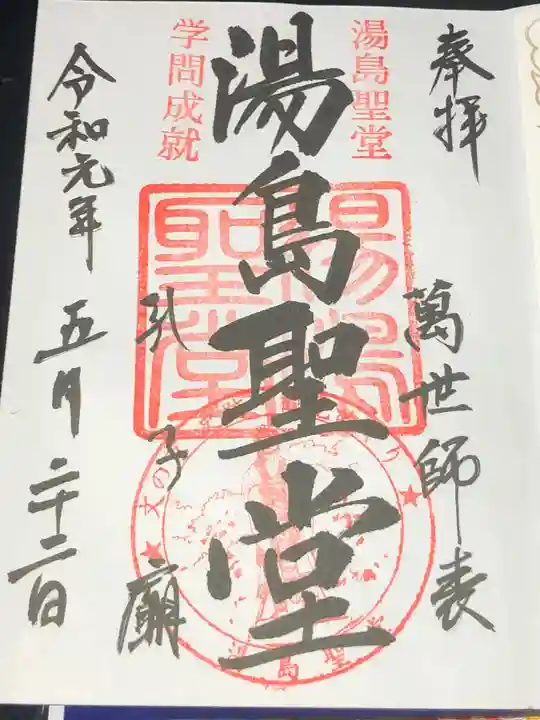 奉拝
萬世師表
湯島聖堂
湯島聖堂
湯島聖堂
学問成就
孔子廟
令和元年
五月二十二日
湯島聖堂